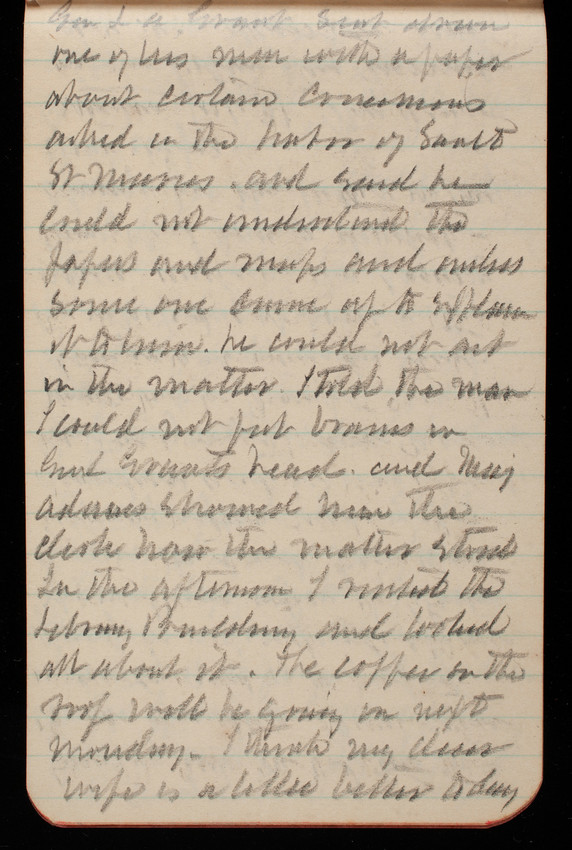 Gen L A Grant sent down
one of his men with a paper
about certain concessions
asked in the harbor of Sault
St Maries. and said he
could not understand the
papers and maps and unless
some one came up to explain
it to him. he could not act
in the matter. I told the man
I could not put brains in
Genl Grants head. and Maj
Adams showed him the
clerk how the matter stood
In the afternoon I visited the
Library Building and looked
all about it. The copper on the
roof will be going on next
Monday. I think my dear
wife is a little better today